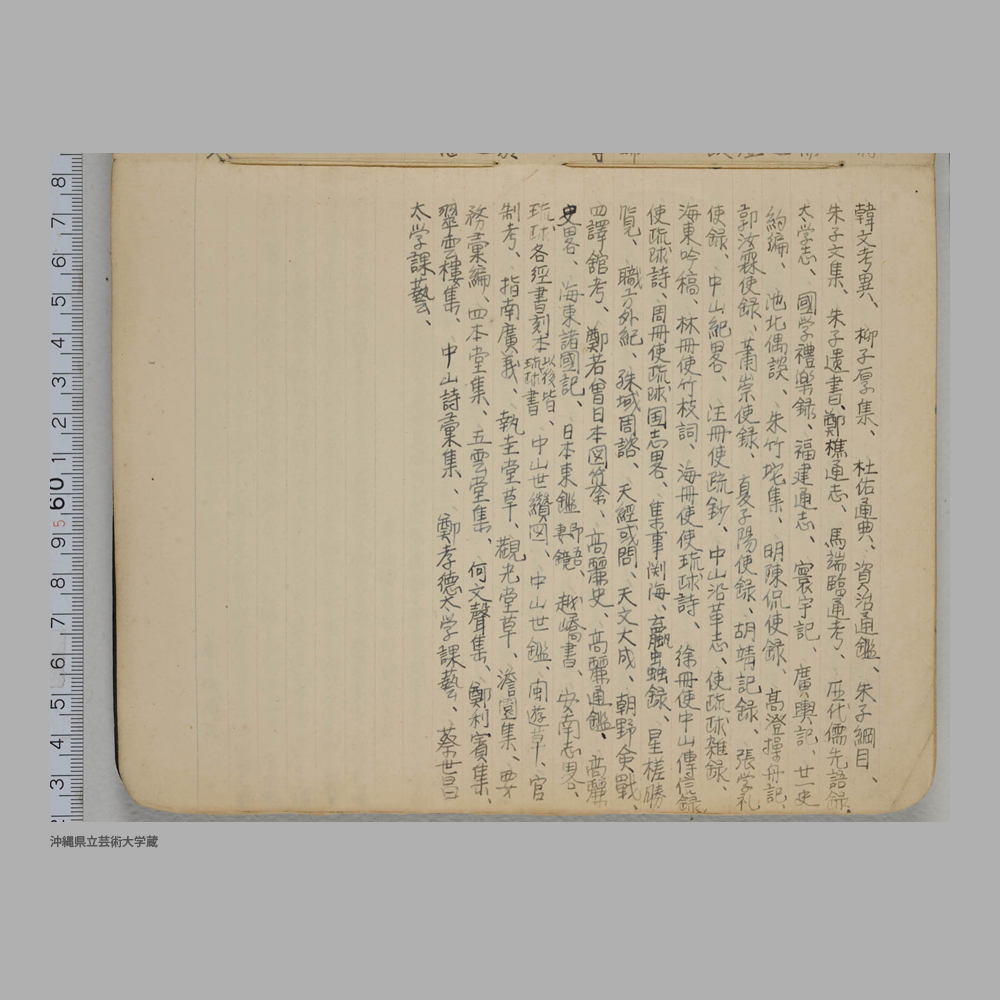 韓文考異、柳子厚集、杜佑通典、資治通鑑、朱子綱目、
朱子文集、朱子遺書、鄭樵通志、馬端臨通考、歷代儒先語録、
太学志、國学禮楽録、福建通志、寰宇記、廣輿記、廿一史
約編、池北偶談、朱竹垞集、明陳侃使録、高澄操舟記、
郭汝霖使録、蕭崇使録、夏子陽使録、胡靖記録、張学礼
使録、中山紀畧、汪册使疏鈔、中山沿革志、使琉球雑録、
海東吟稿、林册使竹枝詞、海册使使琉球詩、徐册使中山傳信録、
使琉球詩、周册使琉球国志畧、集事渕海、蠃虫録、星槎勝
覧、職方外紀、殊域周諮、天經或問、天文大成、朝野僉戰、
四譯館考、鄭若曽日本図纂、高麗史、高麗通鑑、高麗
史畧、海東諸國記、日本東鑑 即吾妻鏡、越嶠書、安南志畧、
琉球各經書刻本 以後皆琉球書、中山世纉図、中山世鑑、闽遊草、官
制考、指南廣義、執圭堂草、觀光堂草、澹園集、要
務彙編、四本堂集、五雲堂集、何文聲集、鄭利賓集、
翠雲樓集、中山詩彙集、鄭孝德太学課藝、蔡世昌
太学課藝、
8 7 6 5 4 3 2 1 60 9 8 7 6 5 4 3
5
沖縄県立芸術大学蔵